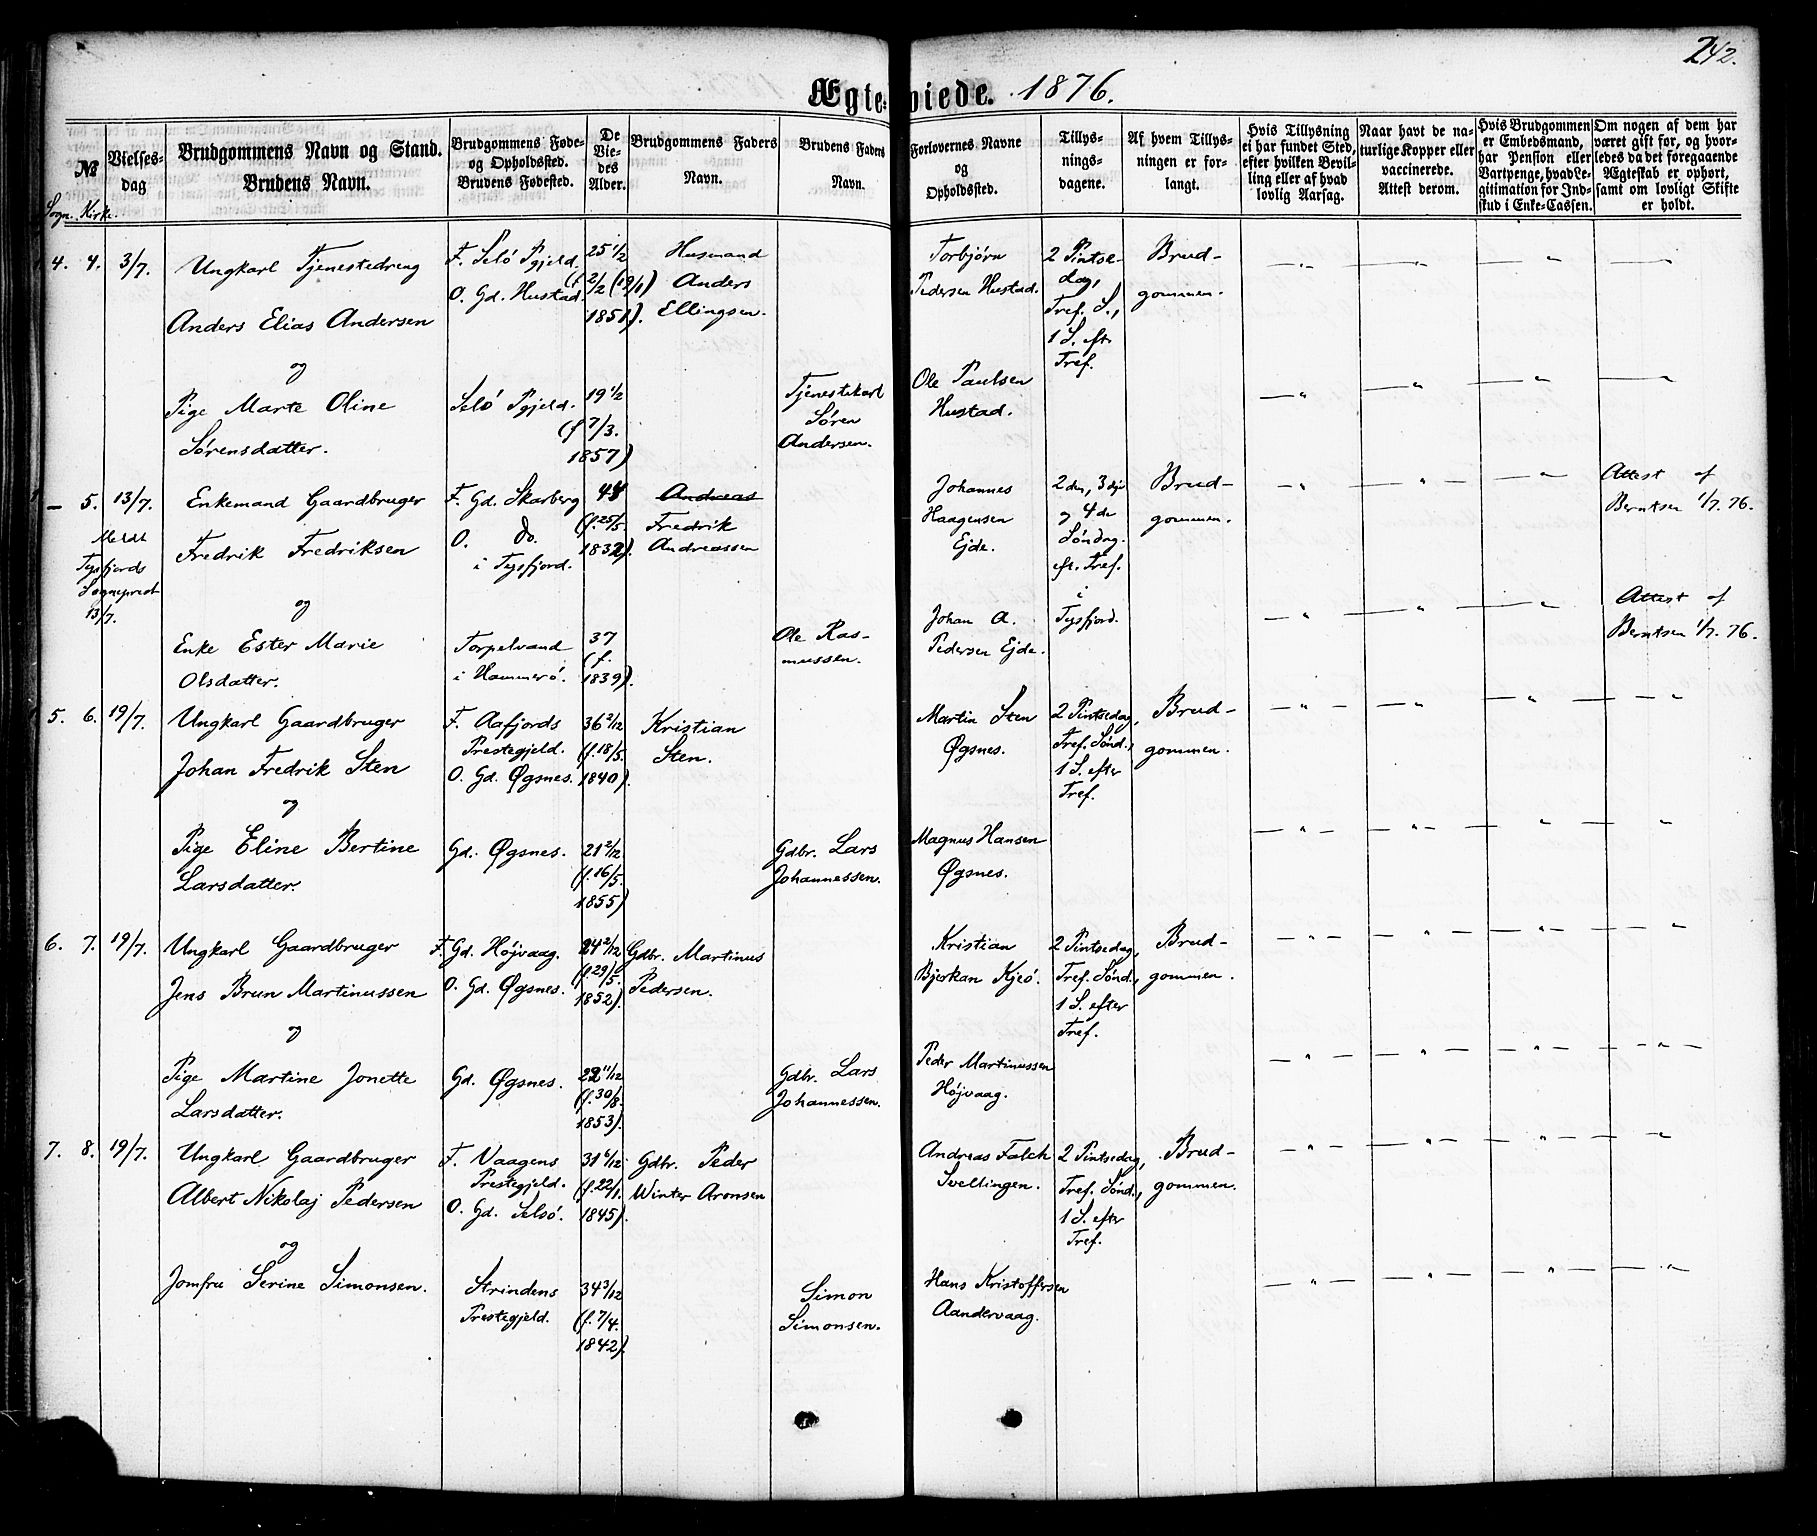 242.
Ægteviede. 1876.
№
Sogn. Kirke.
Vielses-
dag
Brudgommens Navn og Stand.
Brudens Navn.
Brudgommens Føde-
og Opholdssted.
Brudens Fødested.
De
Vie-
des
Alder.
Brudgommens Faders
Navn.
Brudens Faders
Navn.
Forlovernes Navne
og
Opholdssted.
Tillys-
nings-
dagene.
Af hvem Tillys-
ningen er for-
langt.
Hvis Tillysning
ei har fundet Sted,
efter hvilken Bevil-
ling eller af hvad
lovlig Aarsag.
Naar havt de na-
turlige Kopper eller
vaccinerede.
Attest derom.
Hvis Brudgommen
er Embedsmand,
har Pension eller
Vartpenge, hvad Le-
gitimation for Ind-
skud i Enke-Cassen.
Om nogen af dem har
været gift før, og hvor-
ledes da det foregaaende
Ægteskab er ophørt,
samt om lovligt Skifte
er holdt.
4. 4. 3/7.
Ungkarl Tjenestedreng
Anders Elias Andersen
og
Pige Marte Oline
Sørensdatter.
F. Selö Pgjeld.
O. Gd. Hustad.
Selö Pgjeld.
25 1/2
(f. 2/2 (19/1)
1851).
19 1/2
(f 7/3.
1857)
Husmand
Anders
Ellingsen.
Tjenestekarl
Søren
Andersen.
Torbjørn
Pedersen Hustad.
Ole Paulsen
Hustad.
2 Pintse-
dag,
Tref. S.,
1 S. eft.
Tref.
Brud-
gommen.
— 5. 13/7.
Meldt
Tysfjords
Sogneprest
13/7.
Enkemand Gaardbruger
Fredrik Fredriksen
og
Enke Ester Marie
Olsdatter.
F. Gd. Skarberg
O. do.
i Tysfjord.
Torpelvand
i Hammerö.
44
(f. 25/5
1832).
37
(f.
1839).
Andreas
Fredrik
Andreassen
Ole Ras-
mussen.
Johannes
Haagensen
Ejde.
Johan A.
Pedersen Ejde.
2den, 3dje
og 4de
Søndag.
eft. Tref.
i
Tysfjord.
Brud-
gommen.
Attest af
Berntsen 1/7. 76.
Attest af
Berntsen 1/7. 76.
5. 6. 19/7.
Ungkarl Gaardbruger
Johan Fredrik Sten
og
Pige Eline Bertine
Larsdatter.
F. Aafjords
Prestegjeld.
O. Gd. Øgsnes.
Gd. Øgsnes.
36 2/12
(f. 18/5.
1840).
21 2/12
(f. 16/5.
1855)
Kristian
Sten.
Gdbr. Lars
Johannessen.
Martin Sten
Øgsnes.
Magnus Hansen
Øgsnes.
2 Pintsedag,
Tref. Sönd.,
1 S. efter
Tref.
Brud-
gommen.
6. 7. 19/7.
Ungkarl Gaardbruger
Jens Brun Martinussen
og
Pige Martine Jonette
Larsdatter.
F. Gd. Højvaag.
O. Gd. Øgsnes.
Gd. Øgsnes.
24 2/12
(f. 29/5.
1852).
22 11/12
(f. 30/8.
1853).
Gdbr. Martinus
Pedersen.
Gdbr. Lars
Johannessen.
Kristian
Bjerkan Kjeö.
Peder Martinussen
Højvaag.
2 Pintsedag,
Tref. Sönd.,
1 S. efter
Tref.
Brud-
gommen.
7. 8. 19/7.
Ungkarl Gaardbruger
Albert Nikolaj Pedersen
og
Jomfru Serine Simonsen.
F. Vaagens
Prestegjeld.
O. Gd. Selsö.
Strindens
Prestegjeld.
31 6/12
(f. 22/1.
1845).
34 3/12
(f. 7/4.
1842).
Gdbr. Peder
Winter Aronsen
Simon
Simonsen.
Andreas Falch
Svellingen.
Hans Kristoffersen
Aandervaag.
2 Pintsedag,
Tref. Sönd.,
1 S. efter
Tref.
Brud-
gommen.